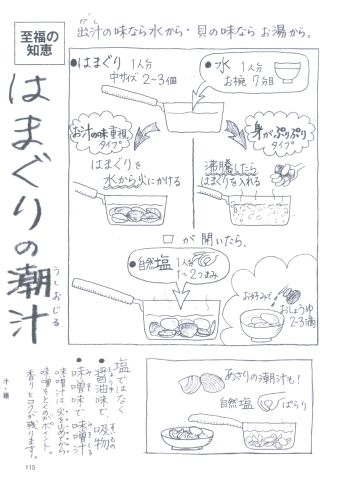 出汁の味なら水から・貝の味ならお湯から。
だし
至福の
知恵
はまぐりの潮汁
うしおじる
●はまぐり 1人分
中サイズ 2~3個
●水 1人分
お椀 7分目
お汁の味重視
タイプ
身がぷりぷり
タイプ
はまぐりを
水から火にかける
沸騰したら
はまぐりを入れる
口が開いたら、
●自然塩 1人分
1~2つまみ
お好みで
おしょうゆ
2~3滴
塩ではなく
●醤油味で、吸物
すいもの
●味噌味で味噌汁
みそ
みそしる
味噌汁は、火を止めてから
味噌をとくのがポイント。
香りとコクが残ります。
あさりの潮汁も!
自然塩
ぱらり
汁・麺
115